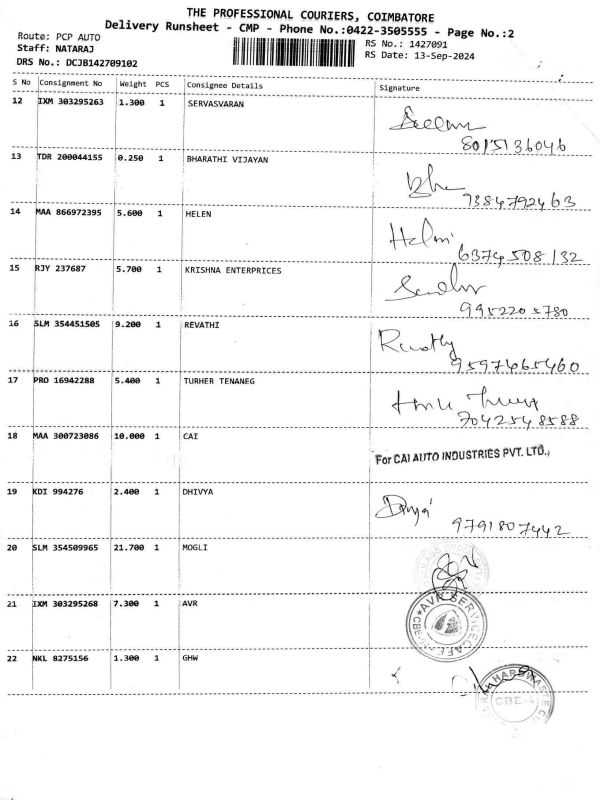 THE PROFESSIONAL COURIERS, COIMBATORE
Delivery Runsheet - CMP - Phone No.:0422-3505555 - Page No.:2
Route: PCP AUTO
Staff: NATARAJ
DRS No.: DCJB142709102
RS No.: 1427091
RS Date: 13-Sep-2024
S No Consignment No Weight PCS Consignee Details Signature
12 IXM 303295263 1.300 1 SERVASVARAN
8015136046
13 TDR 200044155 0.250 1 BHARATHI VIJAYAN
9384792463
14 MAA 866972395 5.600 1 HELEN
6374508132
15 RJY 237687 5.700 1 KRISHNA ENTERPRICES
9952205780
16 SLM 354451505 9.200 1 REVATHI
9597465460
17 PRO 16942288 5.400 1 TURHER TENANEG
7042548588
18 MAA 300723086 10.000 1 CAI
For CAI AUTO INDUSTRIES PVT. LTD.,
19 KDI 994276 2.400 1 DHIVYA
9791807442
20 SLM 354509965 21.700 1 MOGLI
21 IXM 303295268 7.300 1 AVR
AVR SERVICE
22 NKL 8275156 1.300 1 GHW
HARDWARE
CBE-4